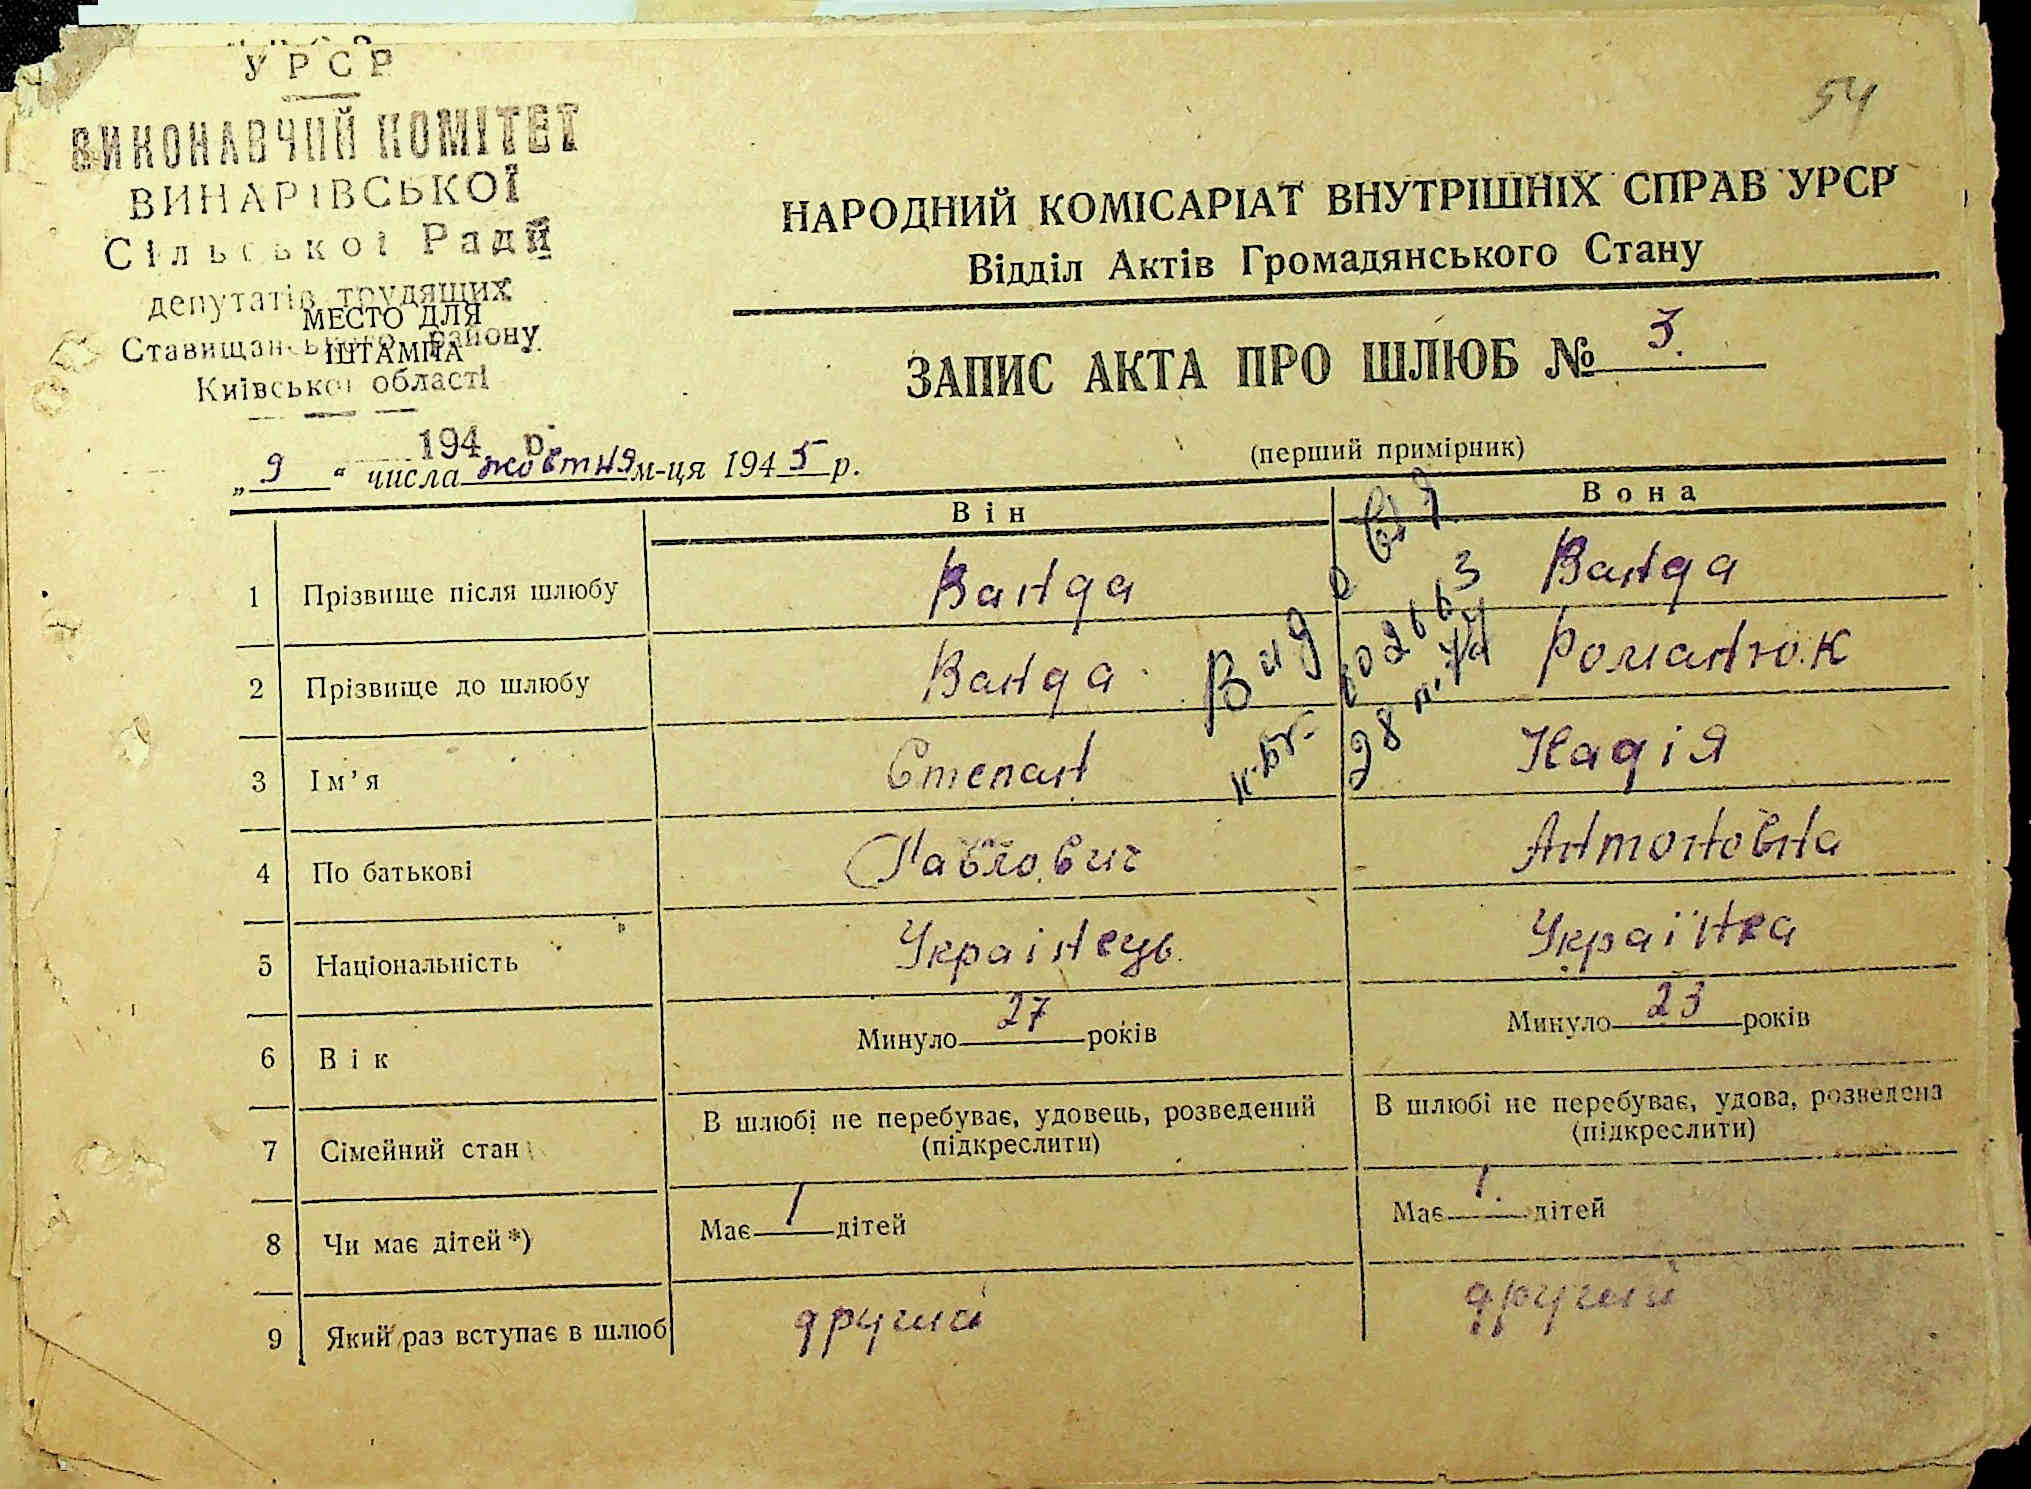 УРСР
ВИКОНАВЧИЙ КОМІТЕТ
ВИНАРІВСЬКОЇ
Сільської Ради
депутатів трудящих
МЕСТО ДЛЯ
Ставищанського району
ШТАМПА
Київської області
194 р.
54
НАРОДНИЙ КОМІСАРІАТ ВНУТРІШНІХ СПРАВ УРСР
Відділ Актів Громадянського Стану
ЗАПИС АКТА ПРО ШЛЮБ № 3.
(перший примірник)
„9“ числа жовтня м-ця 1945 р.
Він Вона
1 Прізвище після шлюбу Ванда Ванда
2 Прізвище до шлюбу Ванда Романюк
3 Ім’я Степан Надія
4 По батькові Павлович Антоновна
5 Національність Українець Українка
6 Вік Минуло 27 років Минуло 23 років
7 Сімейний стан В шлюбі не перебуває, удовець, розведений (підкреслити) В шлюбі не перебуває, удова, розведена (підкреслити)
8 Чи має дітей *) Має 1 дітей Має 1. дітей
9 Який раз вступає в шлюб другий другий